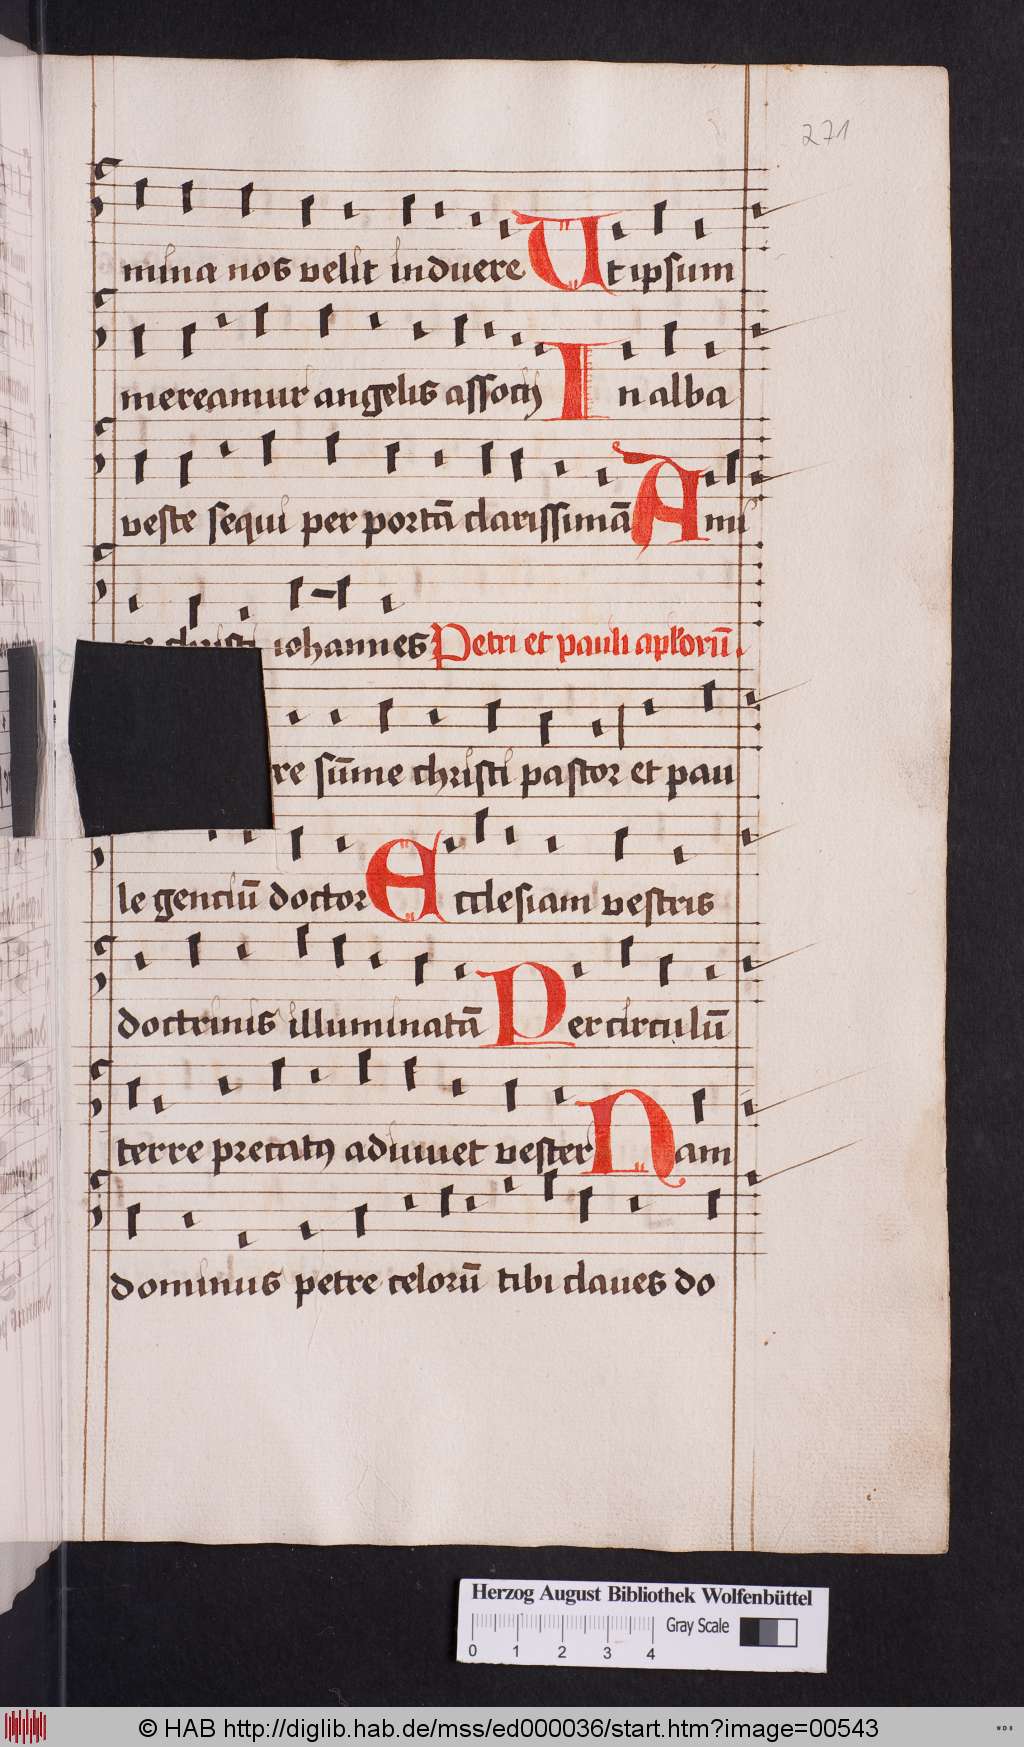 271
mina nos velit induere Ut ipsum
mereamur angelis associj In alba
veste sequi per portā clarissimā Ami
christi iohannes Petri et pauli aplorū.
re sūme christi pastor et pau
le genciū doctor Ecclesiam vestris
doctrinis illuminatā Per circulū
terre precatus adiuuet vester Nam
dominus petre celorū tibi claues do
Herzog August Bibliothek Wolfenbüttel
Gray Scale
0 1 2 3 4
© HAB http://diglib.hab.de/mss/ed000036/start.htm?image=00543